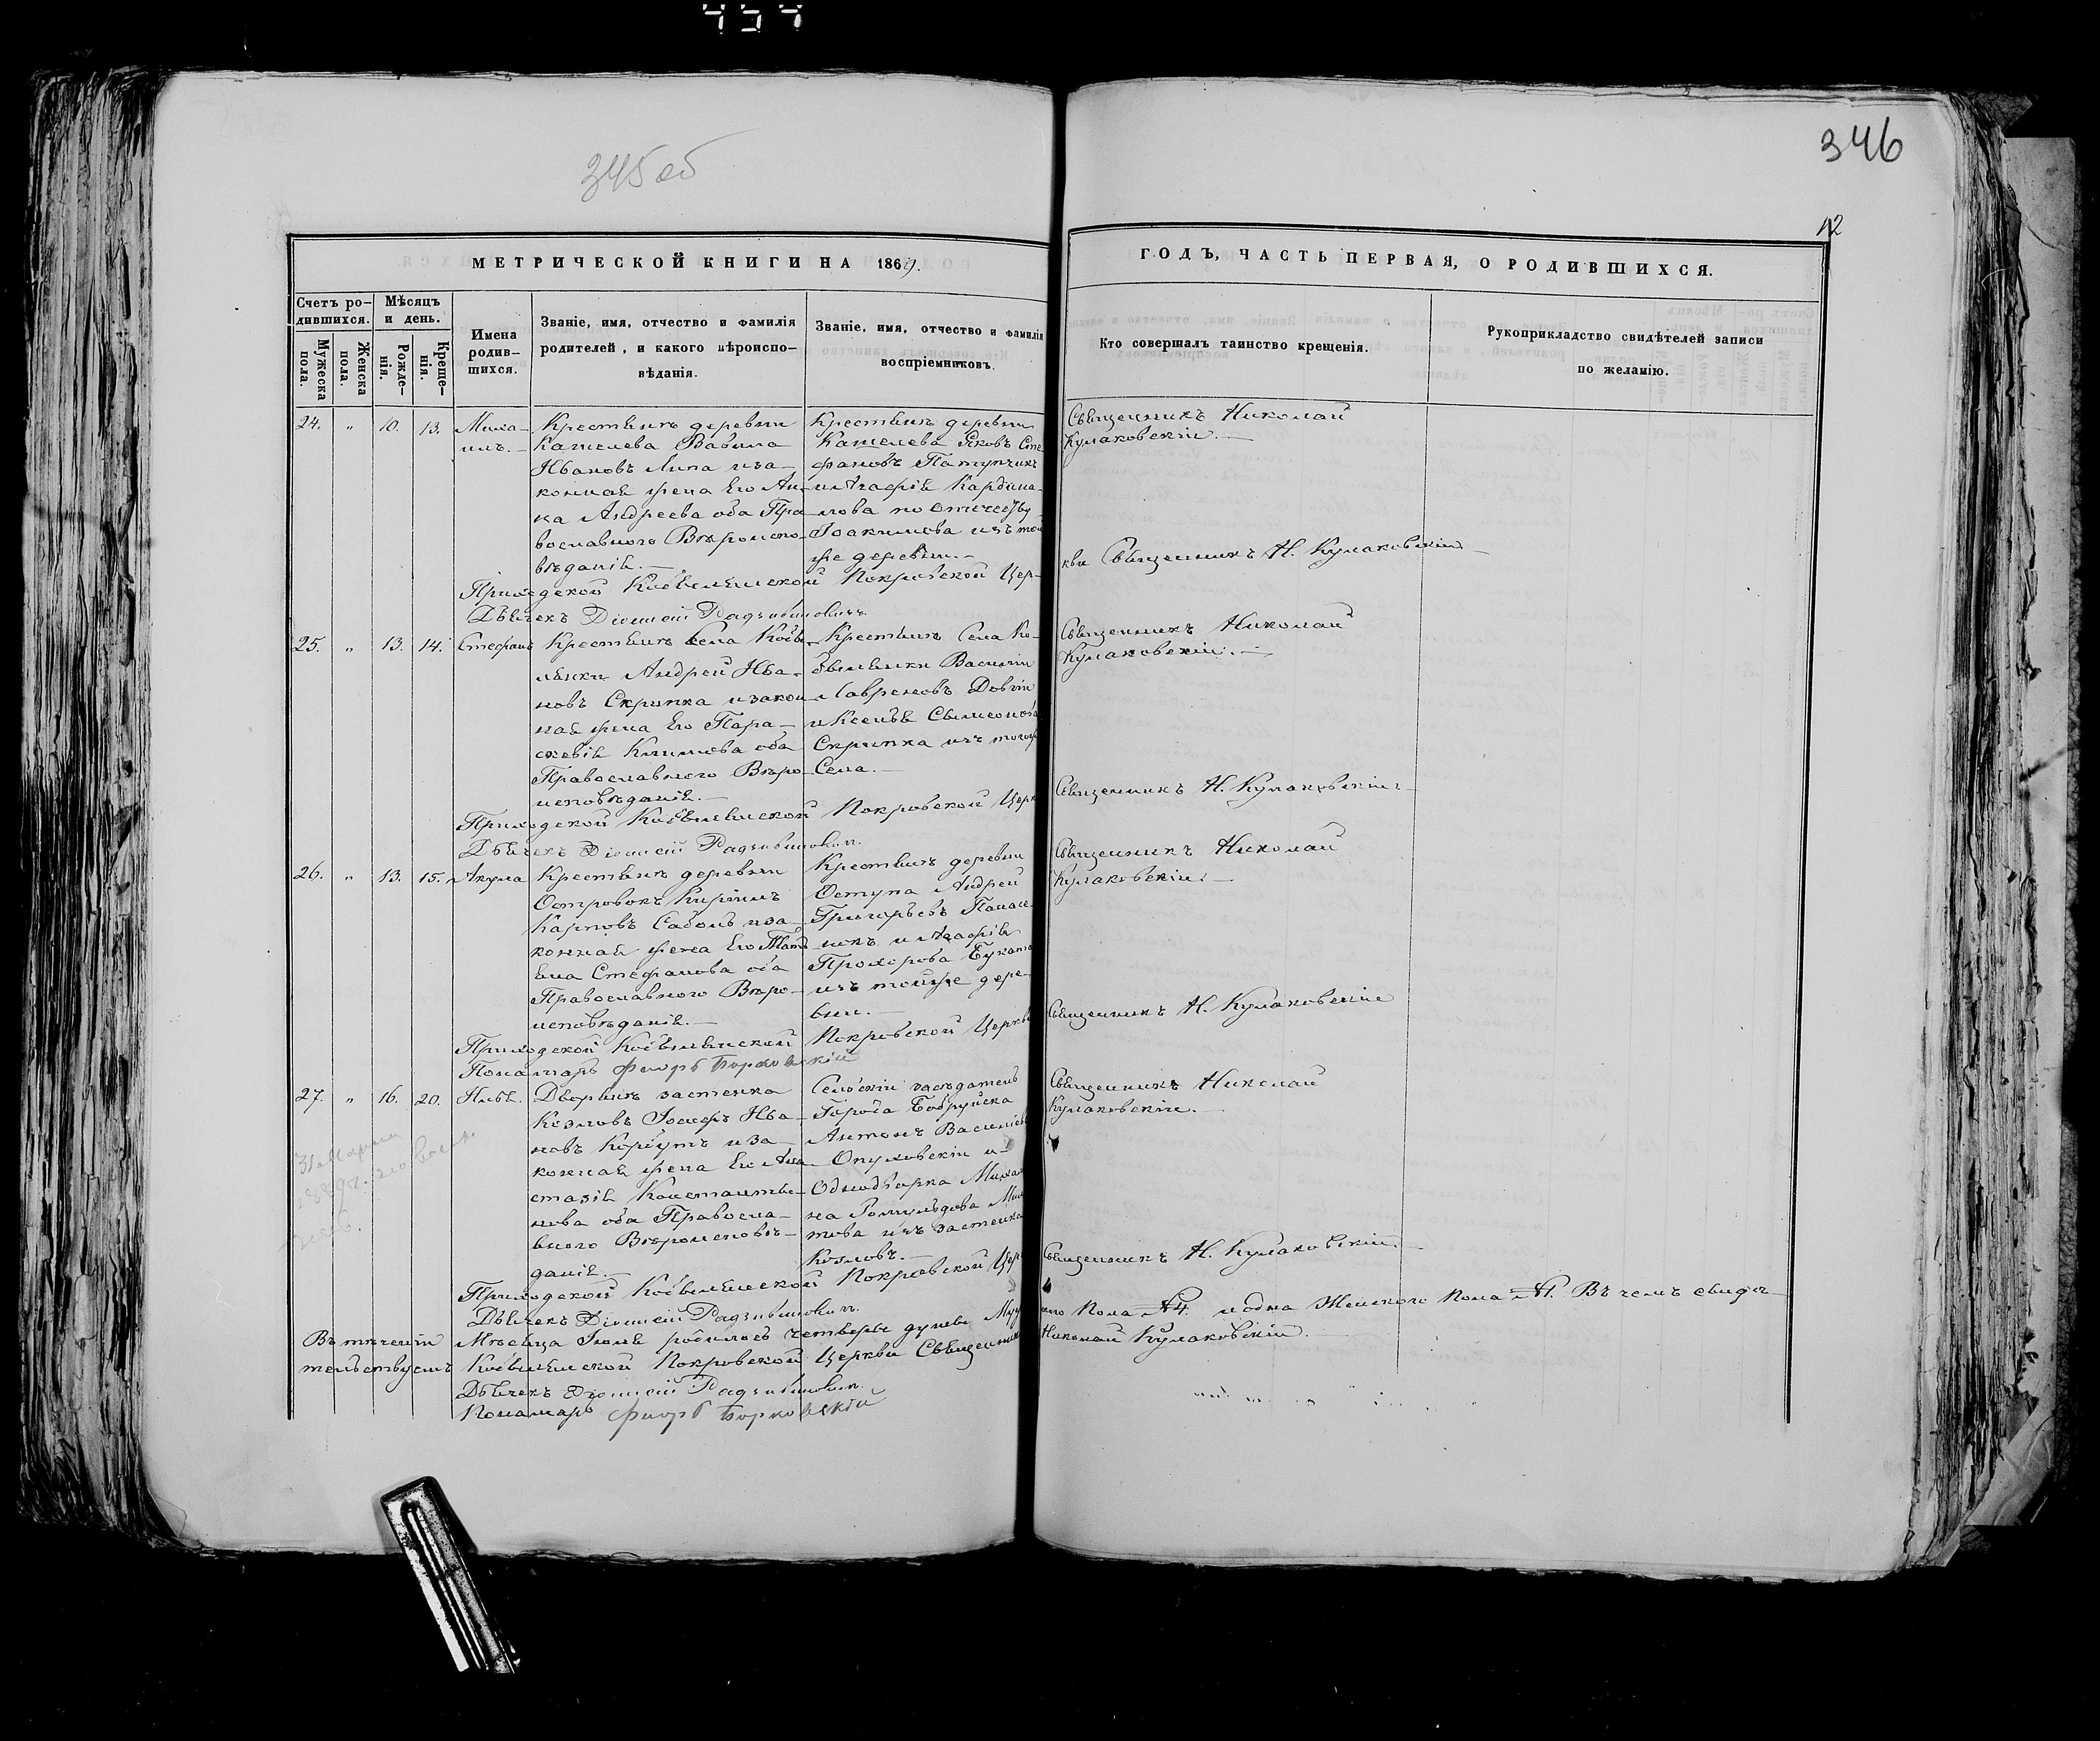 345 об
346
12
МЕТРИЧЕСКОЙ КНИГИ НА 1869.
ГОДЪ, ЧАСТЬ ПЕРВАЯ, О РОДИВШИХСЯ.
Счетъ ро-
дившихся.
Мужеска
пола.
Женска
пола.
Мѣсяцъ
и день.
Рожде-
нія.
Креще-
нія.
Имена
родив-
шихся.
Званіе, имя, отчество и фамилія
родителей, и какого вѣроиспо-
вѣданія.
Званіе, имя, отчество и фамилія
воспріемниковъ.
Кто совершалъ таинство крещенія.
Рукоприкладство свидѣтелей записи
по желанію.
24. " 10. 13.
Миха-
илъ.
Крестьянъ деревни
Кашелева Вавила
Ивановъ Липа и за-
конная жена Его Ан-
на Андреева оба Пра-
вославного Вѣроиспо-
вѣданія.
Крестьянъ деревни
Кашелева Яковъ Сте
фановъ
и Агафія
лова по отечеству
Іоакимова изъ той
же деревни.
Священникъ Николай
Кулаковскій.
Приходской Кобылянской Покровской Цер-
кви Священникъ Н. Кулаковскій
Дьячекъ Діонисій Радзивиновичъ
25. " 13. 14.
Стефанъ
Крестьянъ Села Кобы-
лянки Андрей Ива-
новъ Скрипка и закон-
ная жена Его Пара-
скевія Климова оба
Православного Вѣро-
исповѣданія.
Крестьянъ Села Ко-
былянки Василій
Лавреновъ
и Ксенія Сымеонова
Скрипка изъ тогоже
Села.
Священникъ Николай
Кулаковскій.
Приходской Кобылянской Покровской Церк
Священникъ Н. Кулаковскій
Дьячекъ Діонисій Радзивиновичъ
26. " 13. 15.
Акула
Крестьянъ деревни
Островокъ
Карповъ и за-
конная жена Его Тать
яна Стефанова оба
Православного Вѣро-
исповѣданія.
Крестьянъ деревни
Оступа Андрей
Григорьевъ
и Агафія
Прохорова
изъ тойже дере-
вни.
Священникъ Николай
Кулаковскій.
Приходской Кобылянской Покровской Церкви
Священникъ Н. Кулаковскій
Понамарь Флоръ Борковскій
27. " 16. 20.
Илья.
Дворянъ застенка
Козловъ Іосифъ Ива-
новъ и за-
конная жена Его Ана
стазія Константы-
нова оба Правосла-
вного Вѣроисповѣ-
данія.
Сельскій засѣдатель
Города Бобруйска
Антонъ Василіев
и
Однодворка Михали
на Ромульдова
това изъ застенка
Козловъ.
Священникъ Николай
Кулаковскій.
Приходской Кобылянской Покровской Цер
Священникъ Н. Кулаковскій.
Дьячекъ Діонисій Радзивиновичъ
Въ теченіи Мѣсяца Іюля родилось четверы душы Муж
ского Пола №4. и одна Женского Пола №1. Въ чемъ свидѣ-
тельствуетъ Кобылянской Покровской Церкви Священникъ
Николай Кулаковскій.
Дьячекъ Діонисій Радзивиновичъ
Понамарь Флоръ Борковскій